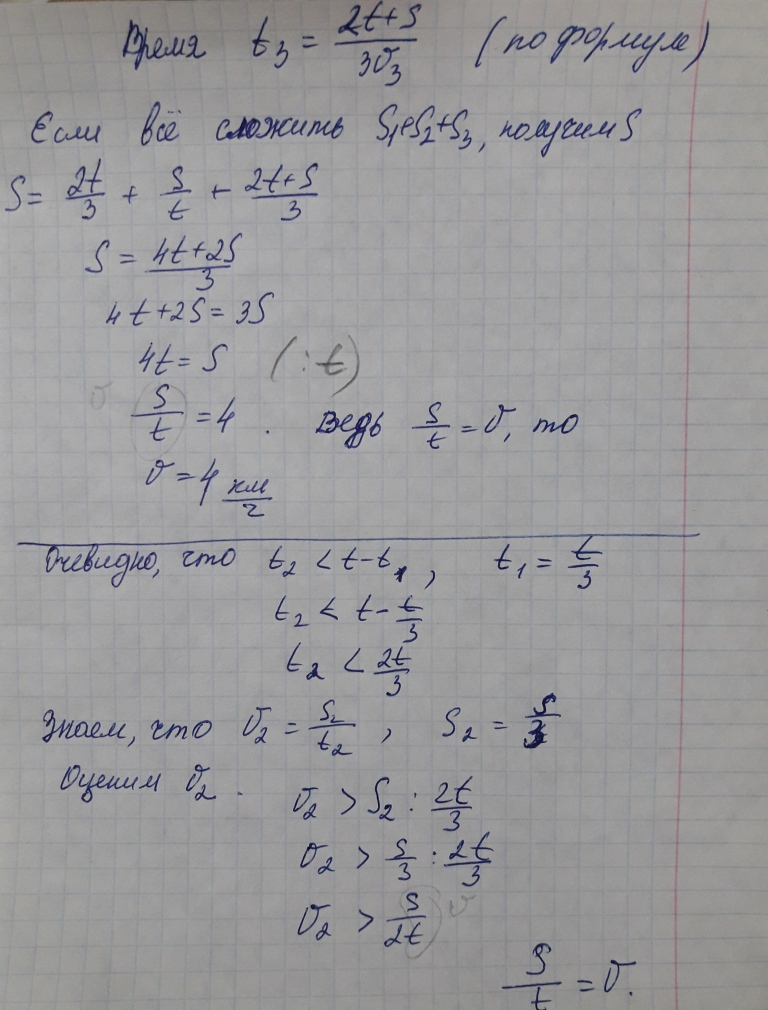 Время t₃ = (2t+S)/(3v₃) (по формуле)
Если всё сложить S₁+S₂+S₃, получим S
S = 2t/3 + S/t + (2t+S)/3
S = (4t+2S)/3
4t+2S = 3S
4t = S (:t)
v S/t = 4. Ведь S/t = v, то
v = 4 км/ч
Очевидно, что t₂ < t-t₁, t₁ = t/3
t₂ < t - t/3
t₂ < 2t/3
Знаем, что v₂ = S₂/t₂, S₂ = S/3
Оценим v₂.
v₂ > S₂ : 2t/3
v₂ > S/3 : 2t/3
v₂ > S/2t v
S/t = v.